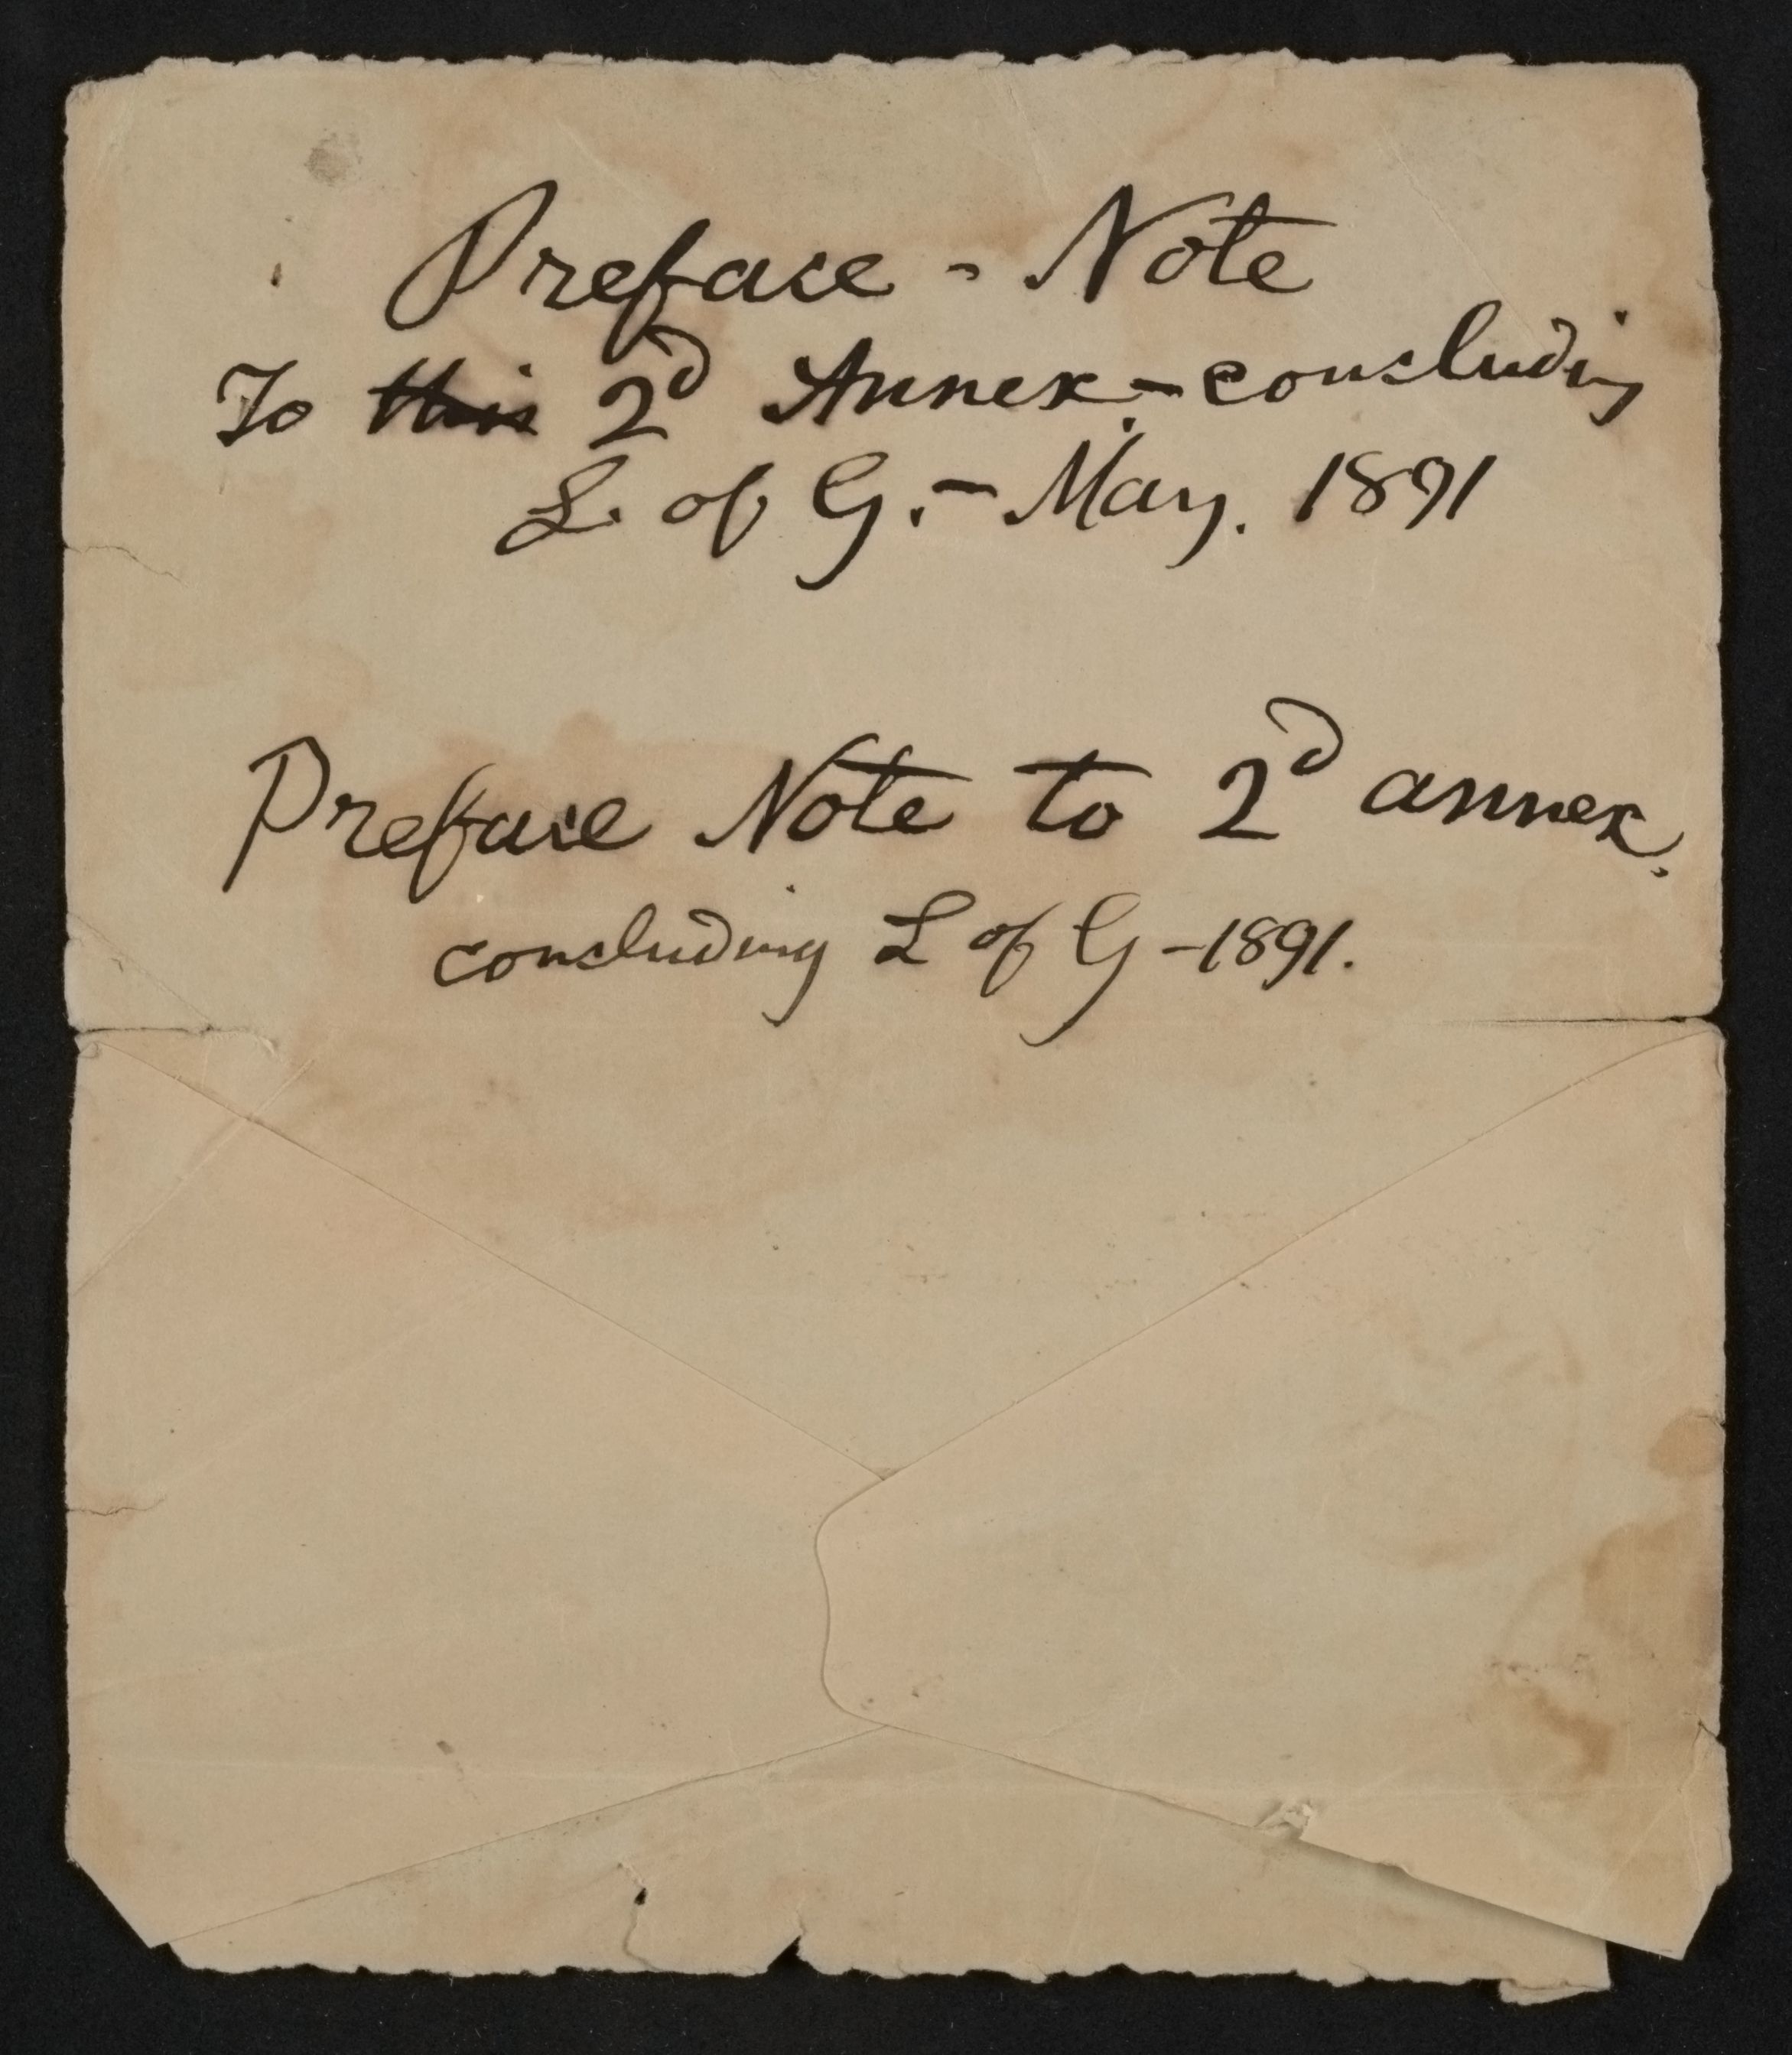 Preface - Note
To this 2d Annex - concluding
L. of G. - May. 1891
Preface Note to 2d annex,
concluding L of G - 1891.